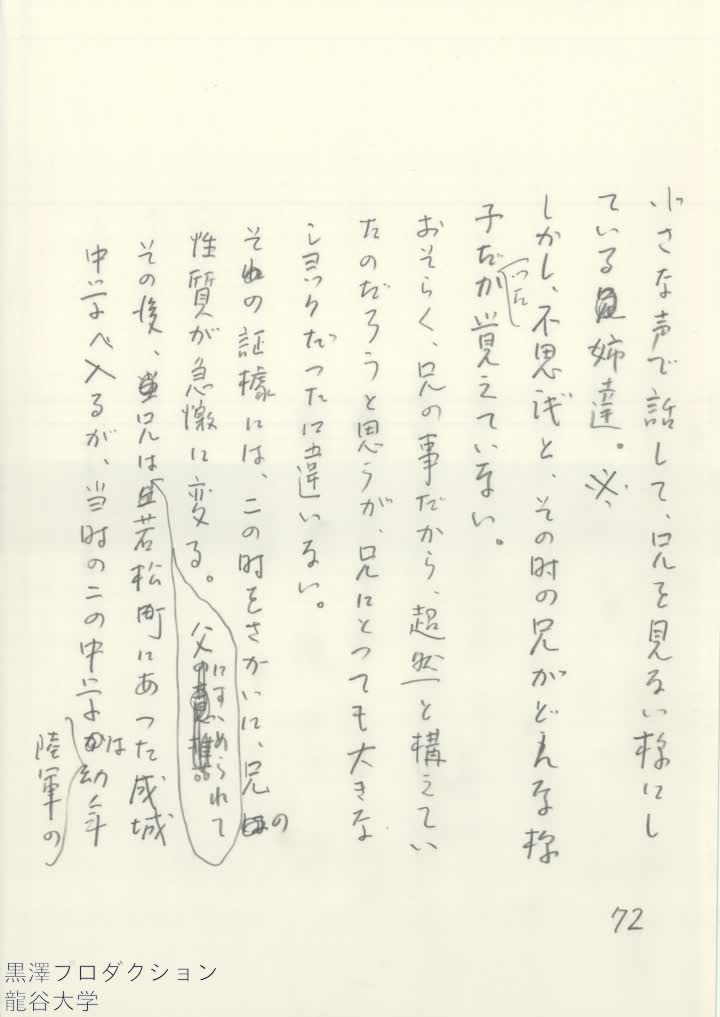 小さな声で話して、兄を見ない様にし
ている姉達。※、
しかし、不思議と、その時の兄がどんな様
子だつたか覚えていない。
おそらく、兄の事だから、超然と構えてい
たのだろうと思うが、兄にとつても大きな
ショックだつたに違いない。
それの証據には、この時をさかいに、兄の
性質が急激に変る。
その後、兄は父にすゝめられて若松町にあつた成城
中学へ入るが、当時のこの中学は陸軍の幼年
72
黒澤プロダクション
龍谷大学